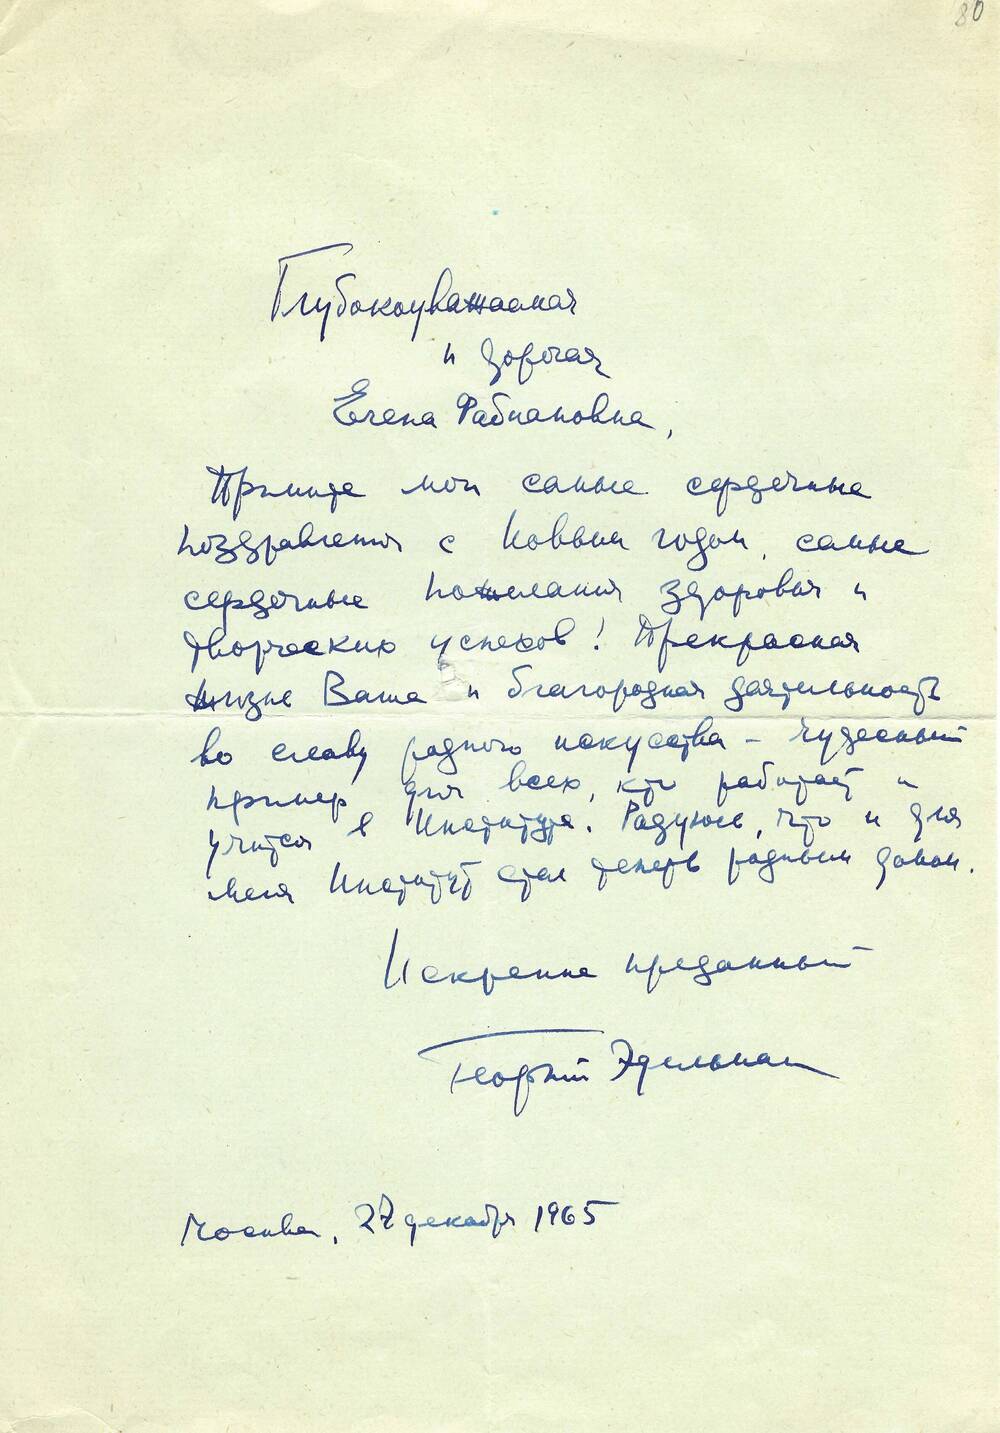 80
Глубокоуважаемая
и дорогая
Елена Фабиановна,
Примите мои самые сердечные
поздравления с Новым годом, самые
сердечные пожелания здоровья и
творческих успехов! Прекрасная
жизнь Ваша и благородная деятельность
во славу родного искусства – чудесный
пример для всех, кто работает и
учится в Институте. Радуюсь, что и для
меня Институт стал теперь родным домом.
Искренне преданный
Георгий Эдельман
Москва, 27 декабря 1965